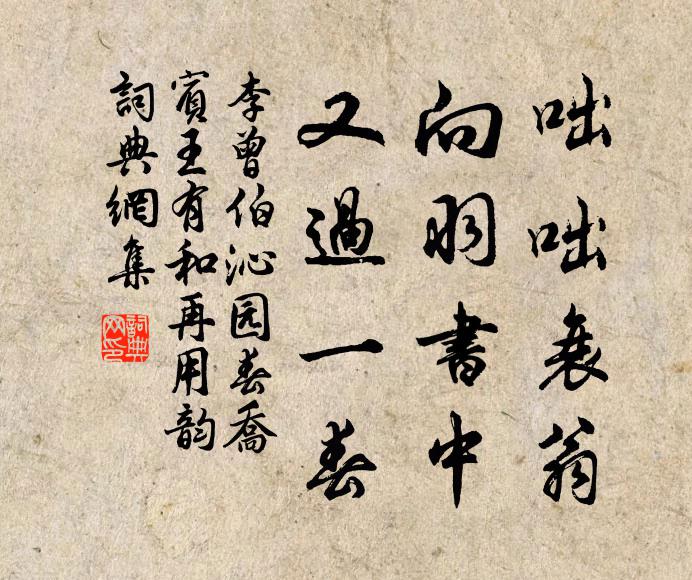 咄咄衰翁
向羽書中
又過一春
李曾伯沁园春喬
賓王有和再用韵
詞典網集
詞典
网印